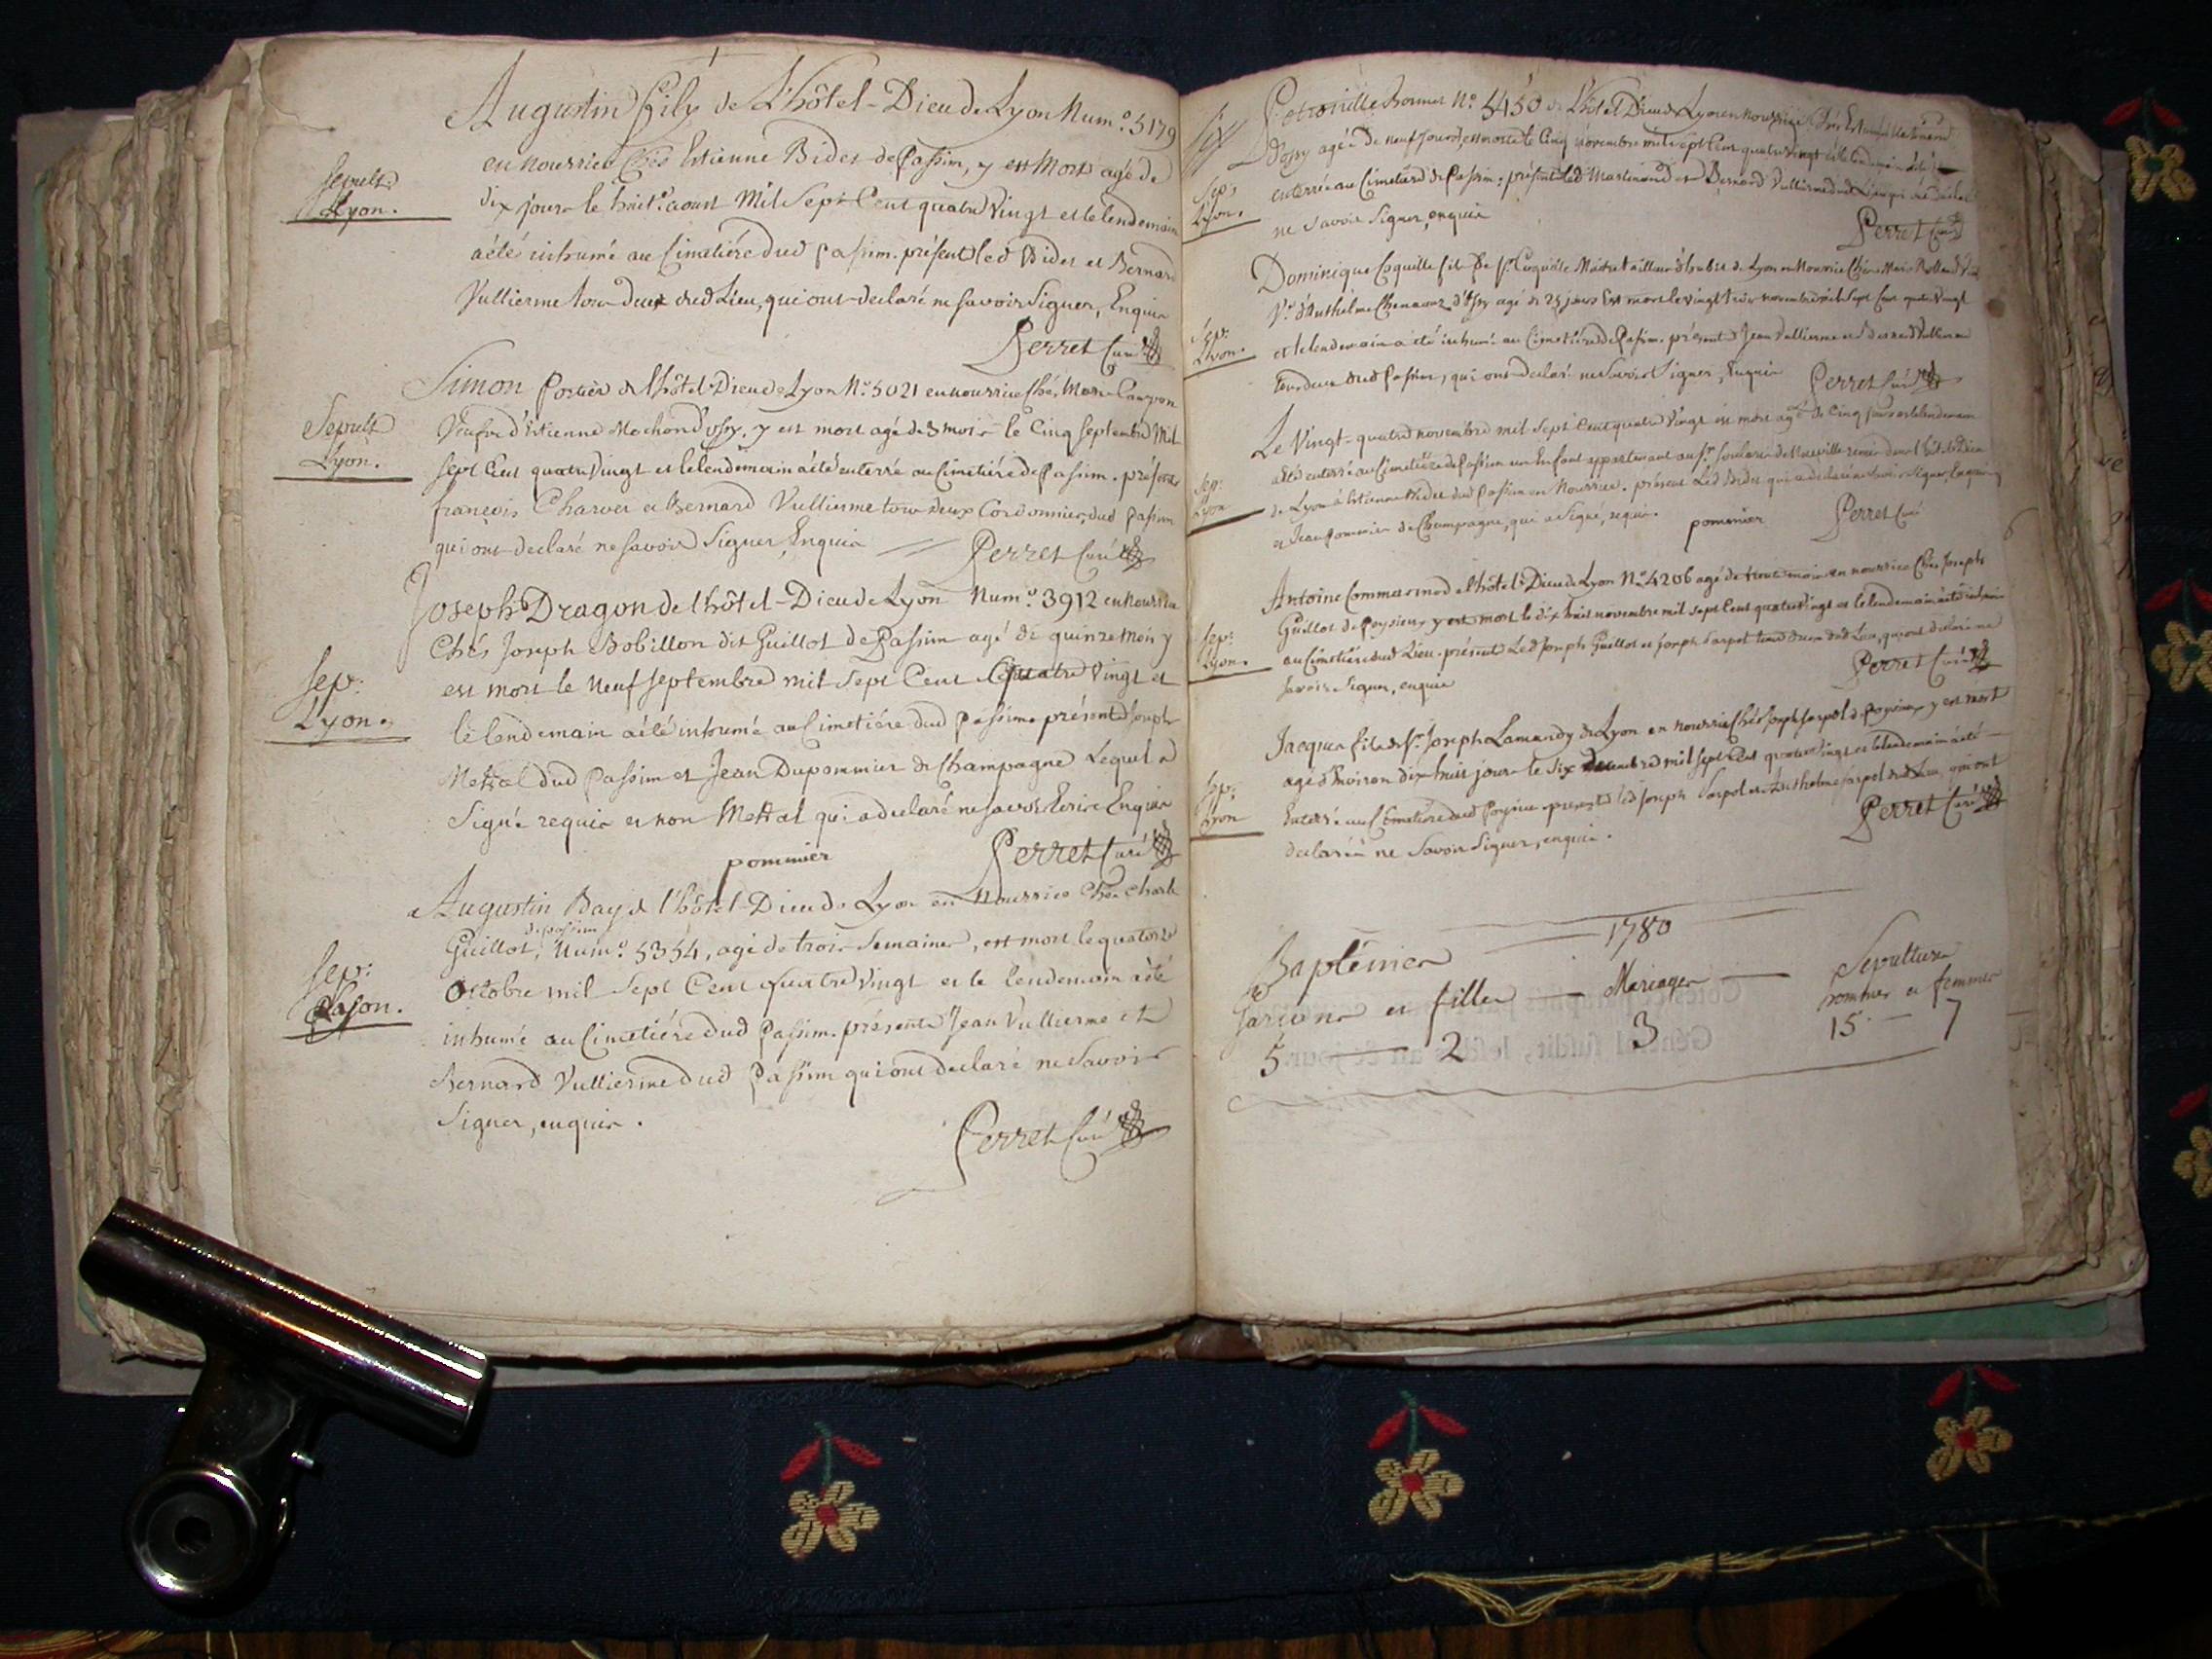 Augustin fily de L'hôtel-Dieu de Lyon Num.º 5179
Sepult.
Lyon.
en nourrice Chés Estienne Bidet de Passim, y est Mort agé de
dix jours le huit.e aoust Mil Sept Cent quatre Vingt et le lendemain
a été inhumé au Cimetiére dud Passim. présent led Bidet et Bernard
Vullierme tous deux dud Lieu, qui ont declaré ne savoir Signer, Enquis
Perret Curé
Sepult
Lyon.
Simon Portier de l'hôtel-Dieu de Lyon Nº 5021 en nourrice Chés Marie
Veufve d'Estienne Mochon d'ossy, y est mort agé de 3 mois le Cinq Septembre Mil
sept Cent quatre Vingt et le lendemain a été enterré au Cimetiére de Passim. présents
françois Charvet et Bernard Vullierme tous deux Cordonnier dud Passim
qui ont declaré ne savoir Signer, Enquis
Perret Curé
Joseph Dragon de l'hôtel-Dieu de Lyon Num.º 3912 en nourrice
Chés Joseph Bobillon dit Guillot de Passim agé de quinze mois y
Sep:
Lyon.
est mort le neuf Septembre mil sept Cent quatre Vingt et
le lendemain a été inhumé au Cimetiére dud Passim présents Joseph
Mettal dud Passim et Jean Dupommier de Champagne Lequel a
Signé requis et non Mettal qui a declaré ne savoir Ecrire Enquis
pommier
Perret Curé
Augustin Bay de l'hôtel-Dieu de Lyon en Nourrice Chés Charle
de passim
Guillot, Num.º 5354, agé de trois Semaines, est mort le quatorze
Sep:
Lyon.
Octobre mil Sept Cent quatre Vingt et le lendemain a été
inhumé au Cimetiére dud Passim. présents Jean Vullierme et
Bernard Vullierme dud Passim qui ont declaré ne savoir
Signer, enquis.
Perret Curé
Six
Petronille Bonnet Nº 5450 de L'hôtel Dieu de Lyon en nourrice Chés
d'ossy agée de neuf jours est morte le Cinq novembre mil sept Cent quatre Vingt et le lendemain a été
Sep:
Lyon.
enterrée au Cimetiére de Passim, présents led Martinand et Bernard Vullierme
ne savoir Signer, enquis
Perret Curé
Dominique Coquille fils de Sr Coquille Maitre Tailleur d'habits de Lyon en Nourrice Chés Marie
Ve d'Anthelme Chenavaz d'ossy agé de 25 jours Est mort le vingt trois novembre mil sept Cent quatre Vingt
Sep:
Lyon.
et le lendemain a été inhumé au Cimetiére de Passim. présents Jean Vullierme et Bernard Vullierme
tous deux dud Passim, qui ont declaré ne savoir Signer, Enquis
Perret Curé
Le Vingt-quatre novembre mil Sept Cent quatre Vingt est mort agé de Cinq jours et le lendemain
Sep:
Lyon
a été enterré au Cimetiére de Passim un Enfant appartenant au Sr
de Lyon à Estienne Bidet dud Passim en Nourrice. présent Led Bidet qui a declaré ne savoir Signer, Enquis
et Jean Pommier de Champagne, qui a Signé, requis.
pommier
Perret Curé
Antoine Commarmod de l'hôtel-Dieu de Lyon Nº 4206 agé de trente mois en nourrice Chés Joseph
Guillot de Poysieux y est mort le dix huit novembre mil sept Cent quatre Vingt et le lendemain a été inhumé
Sep:
Lyon.
au Cimetiére dud Lieu. présents Led Joseph Guillot et Joseph Sarpol tous deux dud Lieu, qui ont declaré ne
Savoir Signer, enquis
Perret Curé
Jacques fils de Sr Joseph Lamandy de Lyon en nourrice Chés Joseph Sarpol de Poysieux y est mort
agé d'Environ dix huit jours le Six Decembre mil sept Cent quatre Vingt et le lendemain a été
Sep:
Lyon
Enterré au Cimetiére dud Poysieux presents led Joseph Sarpol et Anthelme Sarpol dud Lieu qui ont
declaré ne Savoir Signer, enquis.
Perret Curé
1780
Baptêmes
Mariages
Sepultures
Garcons et filles
hommes et femmes
5 2 3 15 7